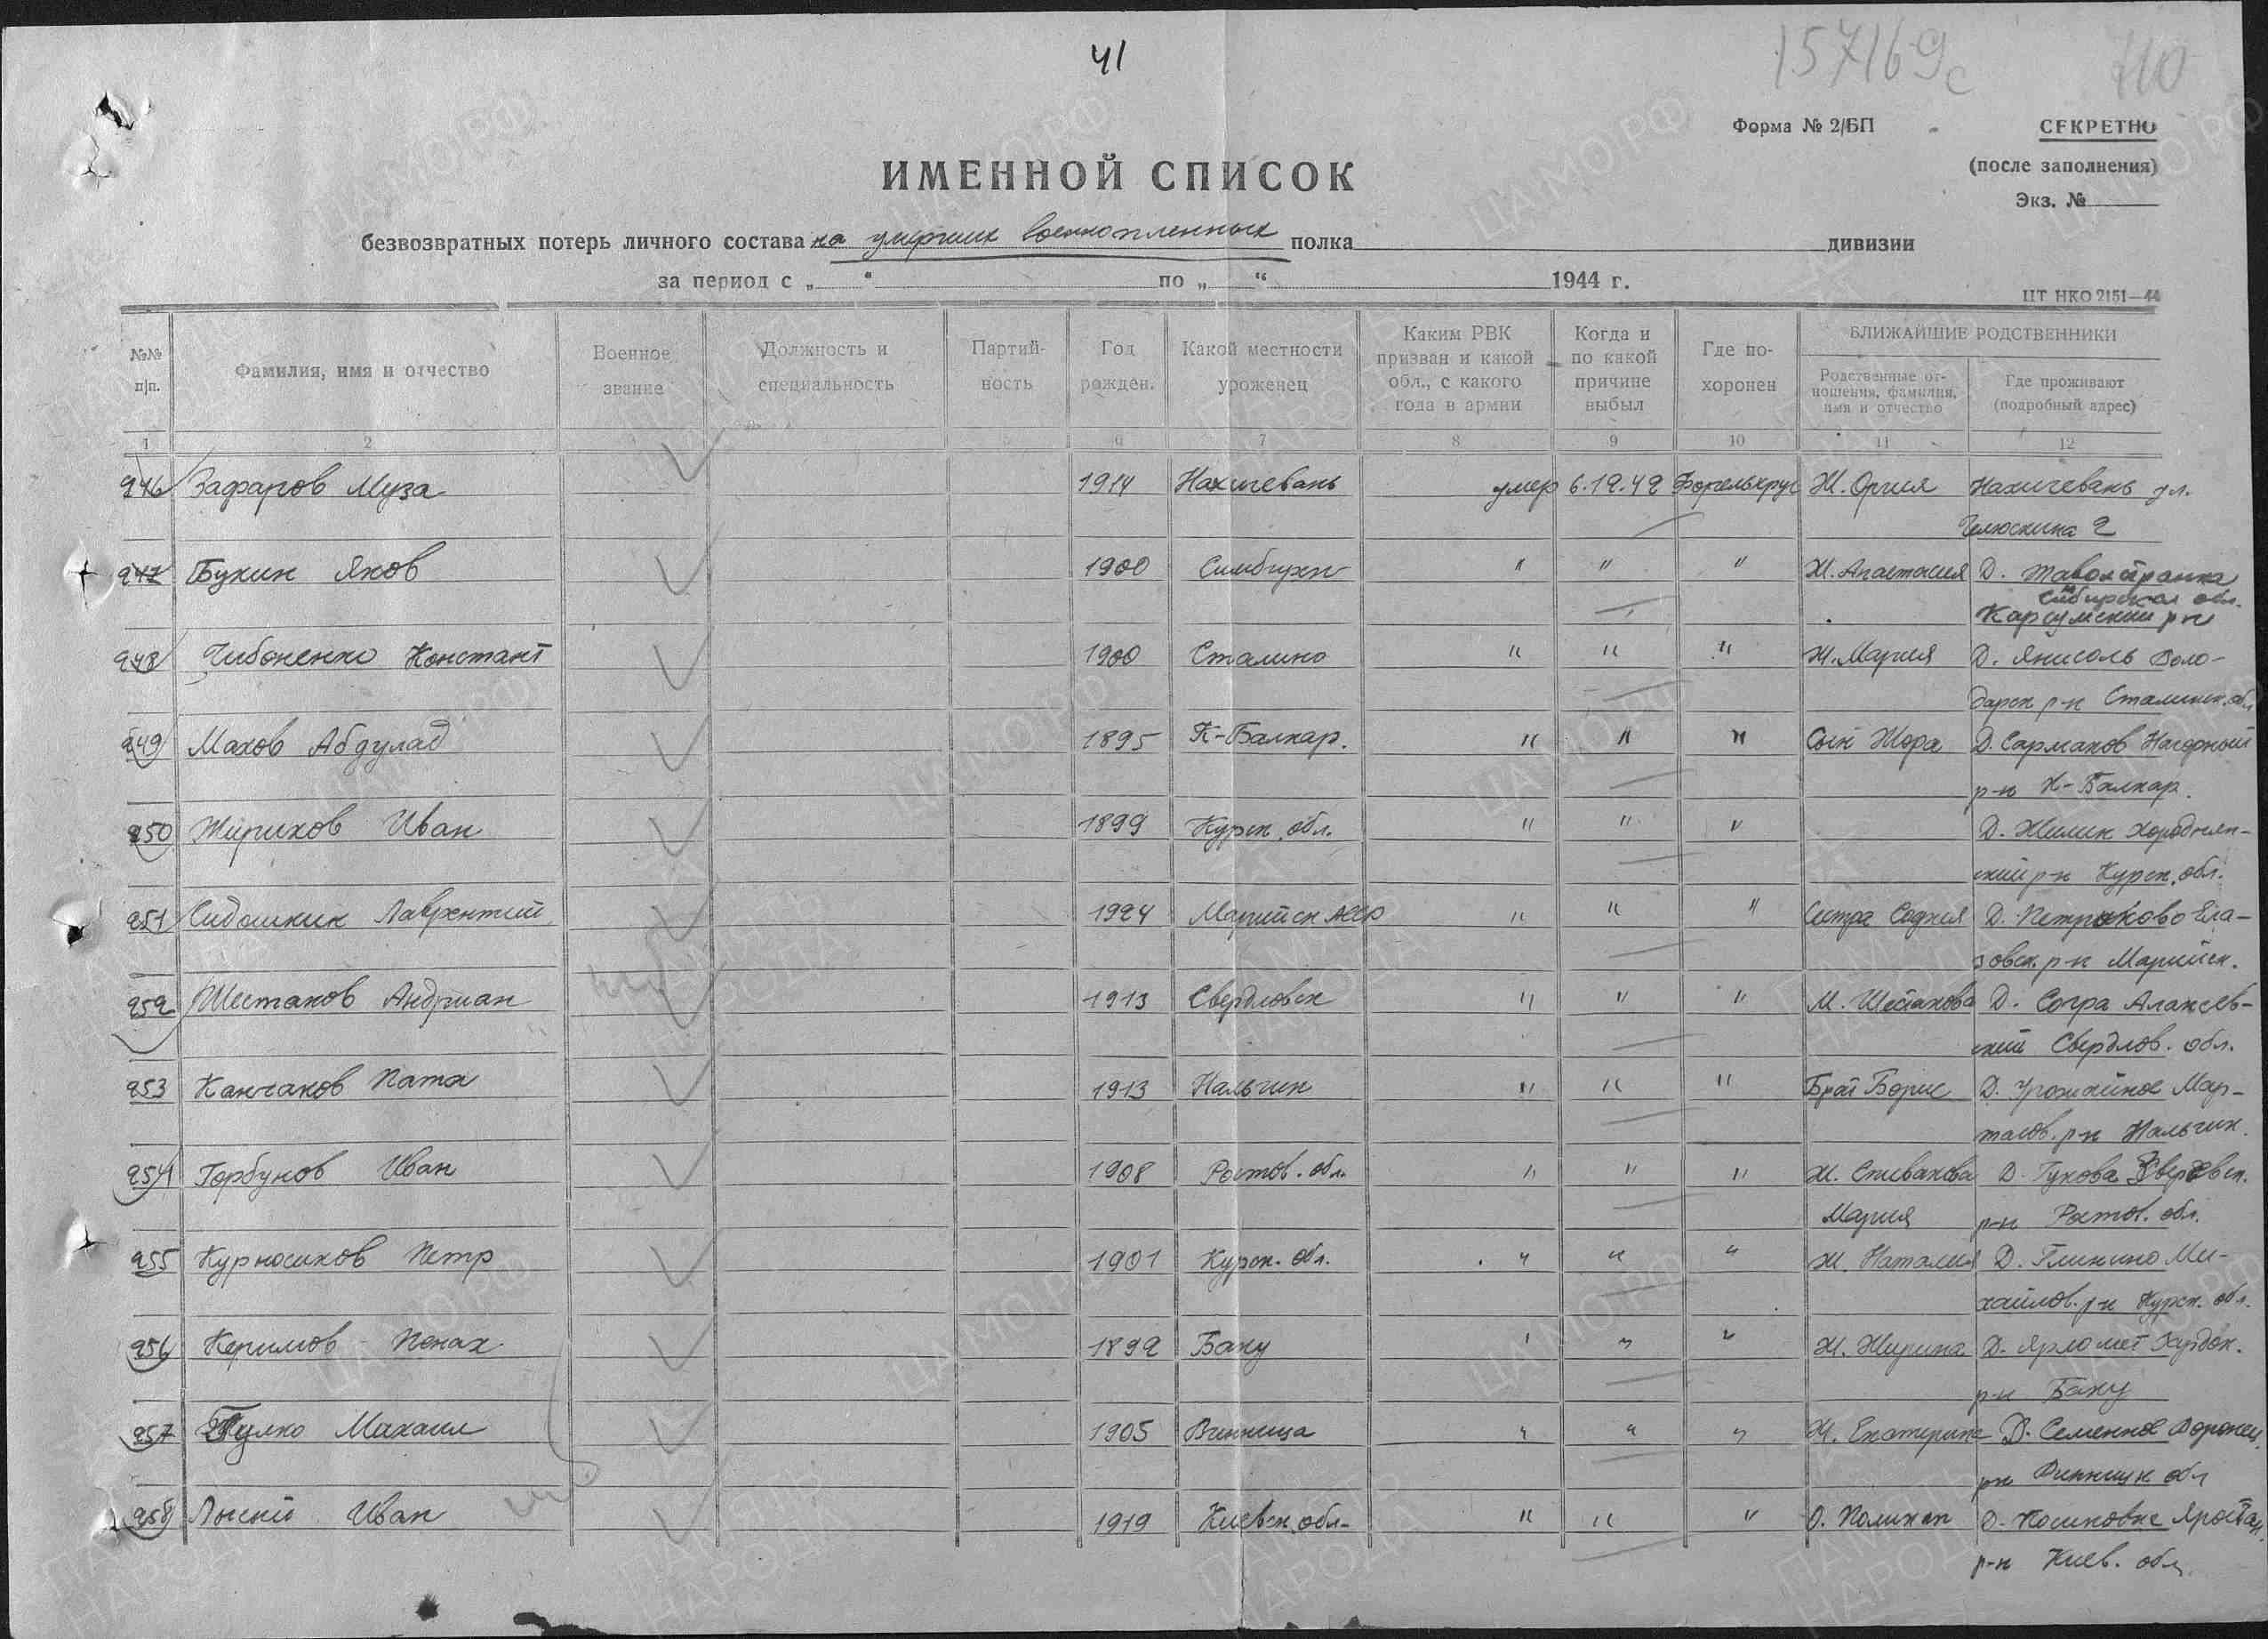 41
157169с
110
Форма № 2/БП
СЕКРЕТНО
(после заполнения)
Экз. №
ИМЕННОЙ СПИСОК
безвозвратных потерь личного состава на умерших военнопленных полка дивизии
за период с „ “ по „ “ 1944 г.
ЦТ НКО 2151—44
№№ п/п. Фамилия, имя и отчество Военное звание Должность и специальность Партийность Год рожден. Какой местности уроженец Каким РВК призван и какой обл., с какого года в армии Когда и по какой причине выбыл Где похоронен БЛИЖАЙШИЕ РОДСТВЕННИКИ
Родственные отношения, фамилия, имя и отчество Где проживают (подробный адрес)
1 2 5 6 7 8 9 10 11 12
946 Зафаров Муза 1914 Нахичевань умер 6.12.42 Фогелькруг Ж. Нахичевань ул.
Челюскина 2
947 Букин Яков 1900 " " " Ж. Анастасия Д.
обл.
р-н
948 Чибоненко Констант 1900 Сталино " " " Ж. Мария Д. Янисоль Воло-
дарск р-н Сталинск. обл
949 Махов Абдулад 1895 К-Балкар. " " " Сын Жора Д. Сармаков Нагорный
р-н К-Балкар.
950 Жирихов Иван 1899 Курск. обл. " " " Д. Жилин
ский р-н Курск. обл.
951 Сидошкин Лаврентий 1924 Марийск АССР " " " Сестра Д. Петриково Ела-
совск. р-н Марийск.
952 Шестаков Андриан 1913 Свердловск " " " М. Шестакова Д. Согра Алапаев-
ский Свердлов. обл.
953 Канчаков Пата 1913 Нальчик " " " Брат Борис Д. Урожайное Мар-
р-н Нальчик.
954 Горбунов Иван 1908 Ростов. обл. " " " Ж. Спивакова Д. Гукова Зверевск.
Мария р-н Ростов. обл.
955 Курносиков Петр 1901 Курск. обл. " " " Ж. Наталия Д. Глинино Ми-
хайлов. р-н Курск. обл.
956 Керимов - Пенах 1892 Баку " " " Ж. Жирина Д.
р-н Баку
957 Михаил 1905 Винница " " " Ж. Екатерина Д. Семенное
рн обл
958 Лысий Иван 1919 Киевск. обл. " " " О. Д. Косиковке
р-н Киев. обл.